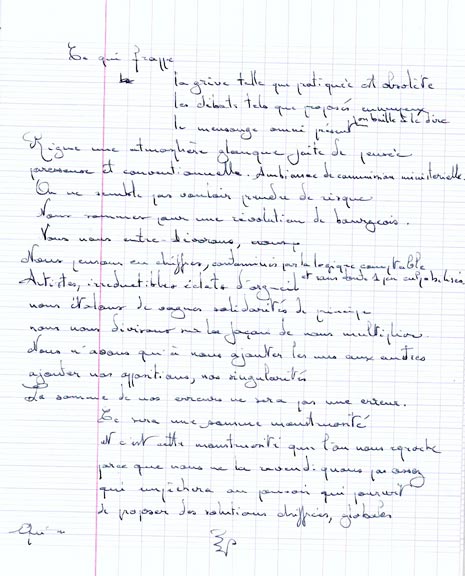 Ce qui frappe
la grève telle que pratiquée est obsolète
les débats tels que proposés ennuyeux
le mensonge omni présent on baille à le dire
Règne une atmosphère glauque faite de pensée
paresseuse et conventionnelle. Ambiance de commission ministerielle.
On ne semble pas vouloir prendre de risque
Nous sommes pour une révolution de bourgeois.
Nous nous entre-dévorons, nous
Nous pensons en chiffres, contaminés par la logique comptable
et sans doute 1 peu culpabilisés
Artistes, irréductibles éclats d'orgueil
nous étalons de vagues solidarités de principe
nous nous divisons sur la façon de nous multiplier.
Nous n'avons qu'à nous ajouter les uns aux autres
ajouter nos oppositions, nos singularités
La somme de nos erreurs ne sera pas une erreur.
Ce sera une somme monstruosité
et c'est cette monstruosité que l'on nous reproche
parce que nous ne la revendiquons pas assez
qui empêchera au pouvoir qui pourrit
de proposer des solutions chiffrées, globales
Qui